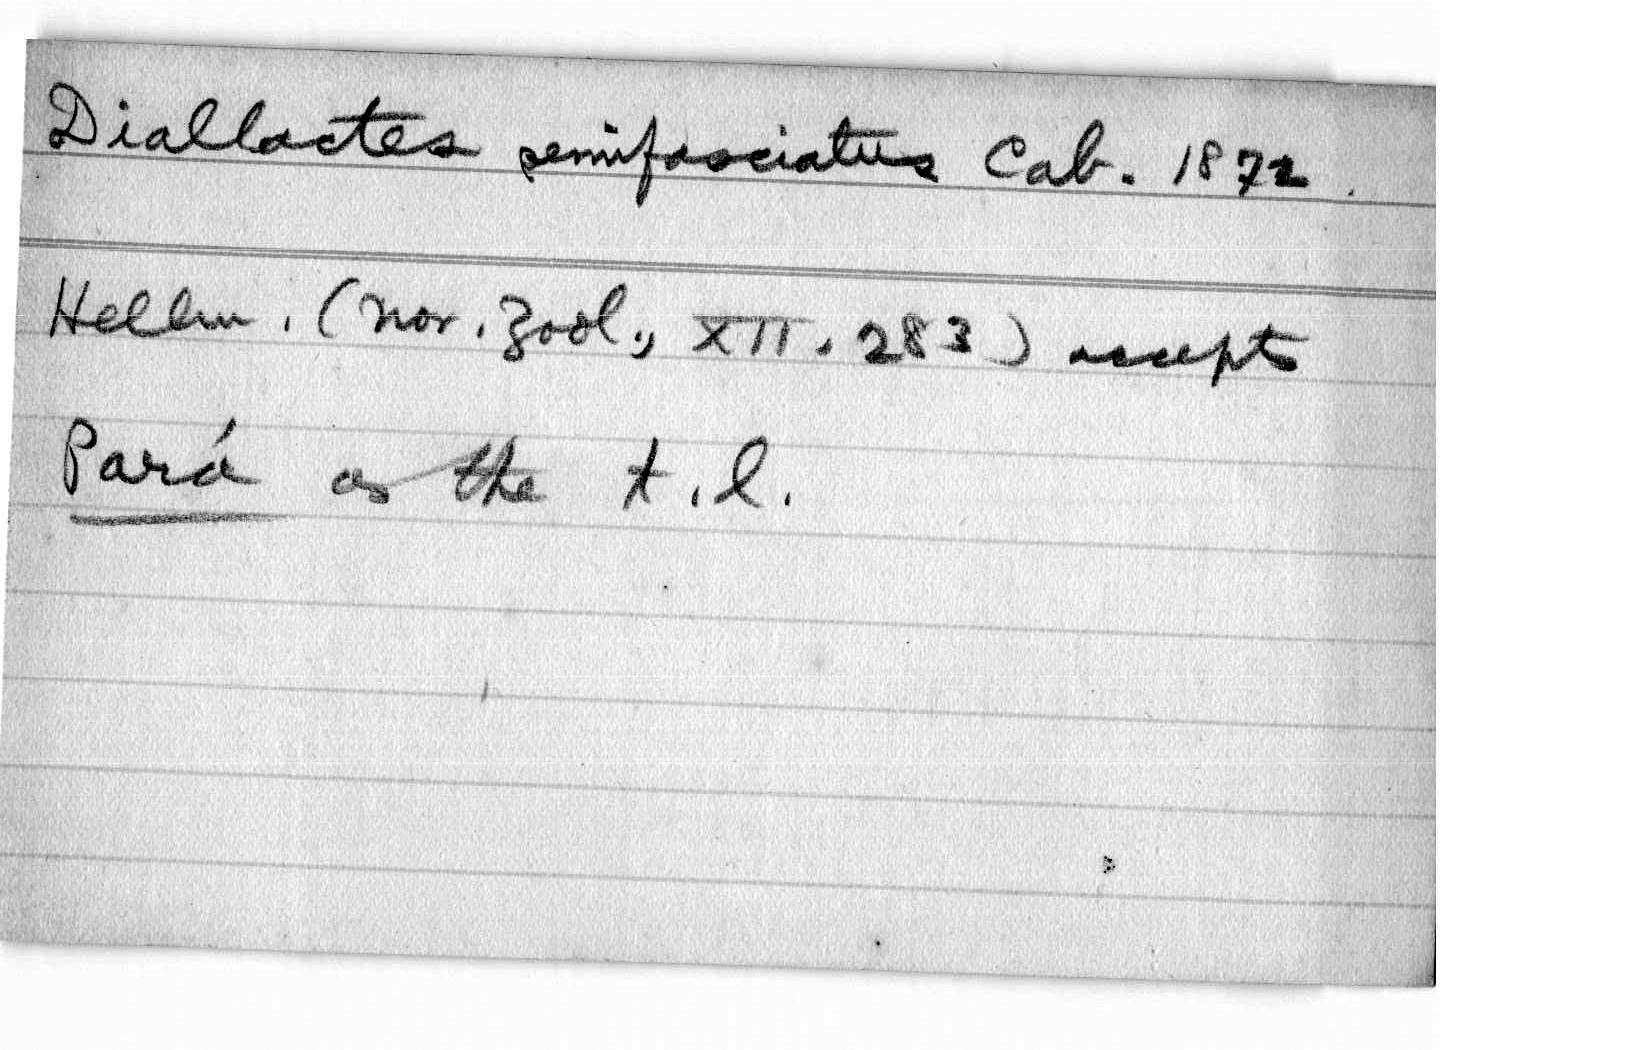 Diallactes semifasciatus Cab. 1872.
Hellm. (Nov. Zool., XII. 283) accepts
Pará as the t.l.